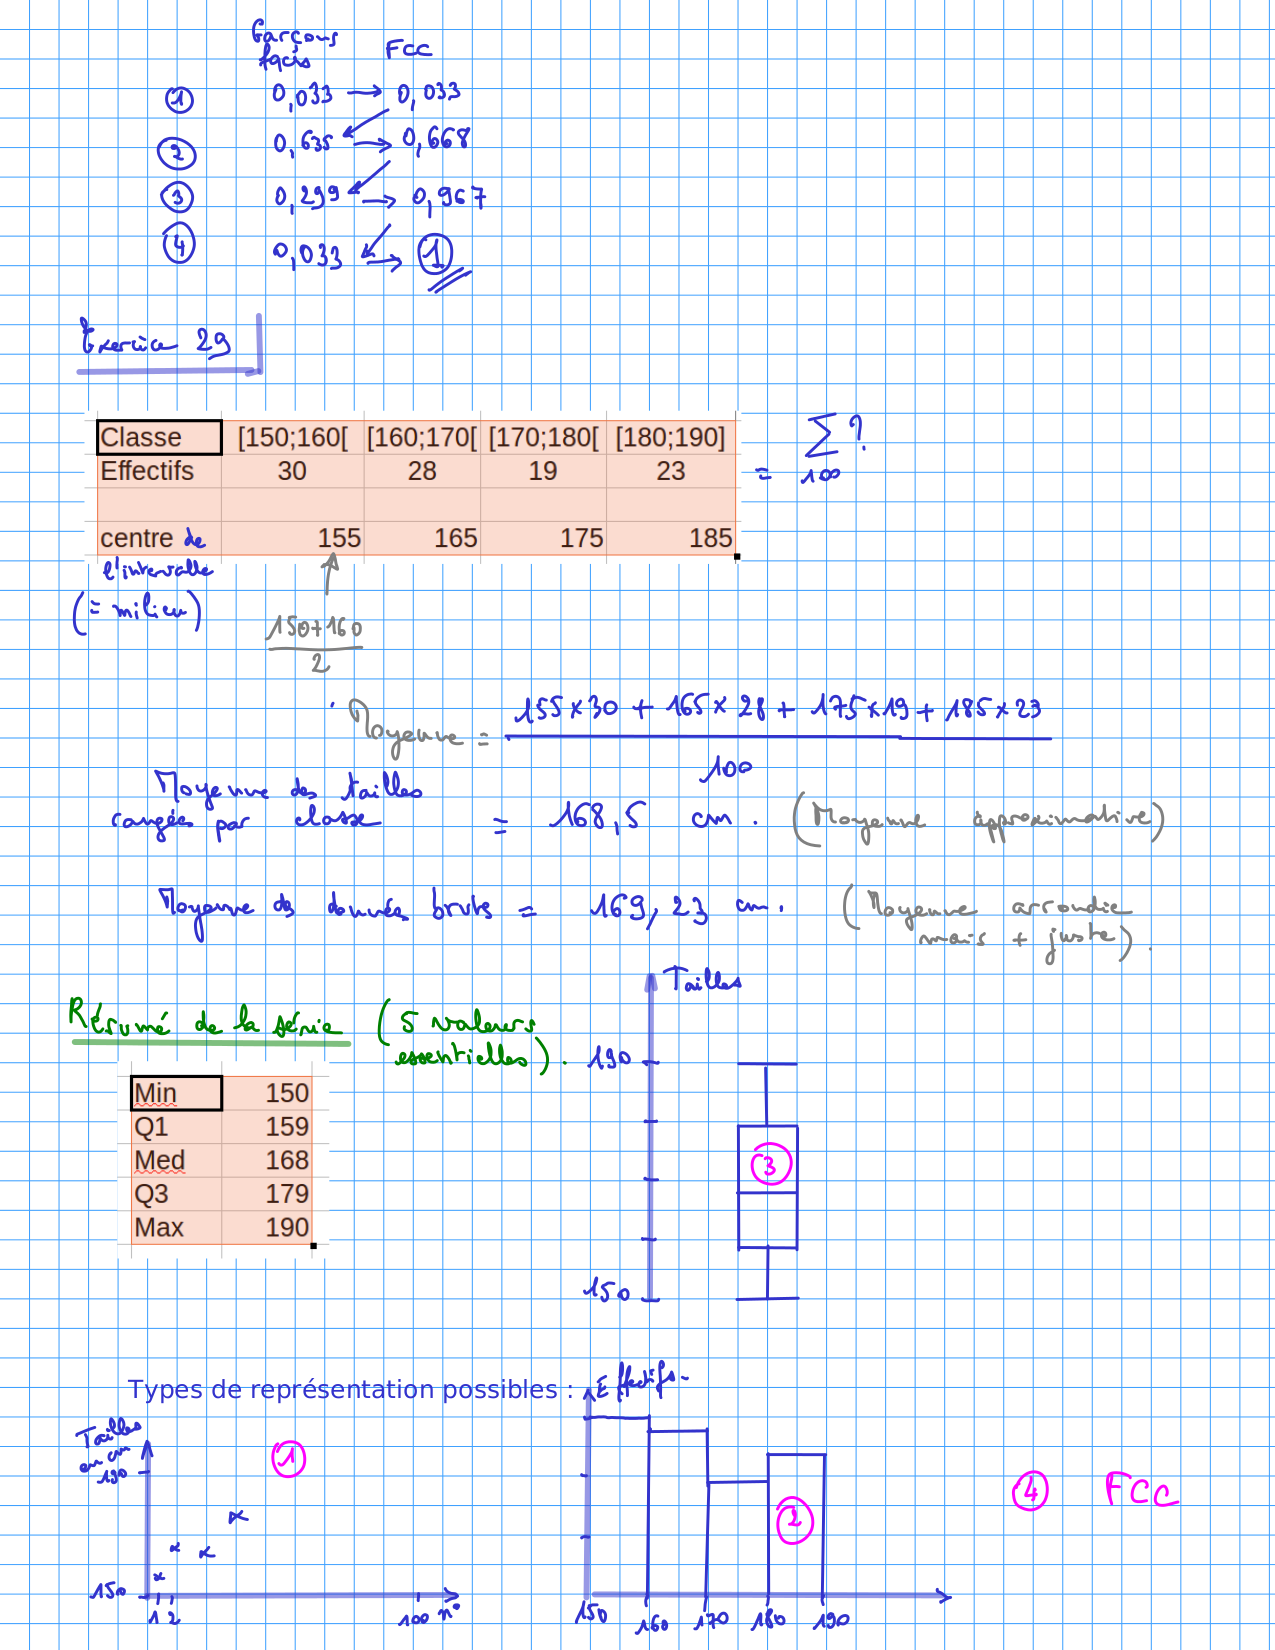 Garçons FCC
façis
① 0,033 → 0,033
② 0,635 → 0,668
③ 0,299 → 0,967
④ 0,033 → 1
Exercice 29
Classe [150;160[ [160;170[ [170;180[ [180;190]
Effectifs 30 28 19 23
= Σ ?
100
centre de 155 165 175 185
l'intervalle
(= milieu)
150+160
2
Moyenne = 155×30 + 165×28 + 175×19 + 185×23
100
Moyenne des tailles
rangées par classe = 168,5 cm. (Moyenne approximative)
Moyenne des données brutes = 169,23 cm. (Moyenne arrondie
mais + juste).
Résumé de la série (5 valeurs
essentielles).
Min 150
Q1 159
Med 168
Q3 179
Max 190
Tailles
190
③
150
Types de représentation possibles :
Tailles
en cm
190
①
150
1 2 100 n°
Effectifs
②
150 160 170 180 190
④ FCC